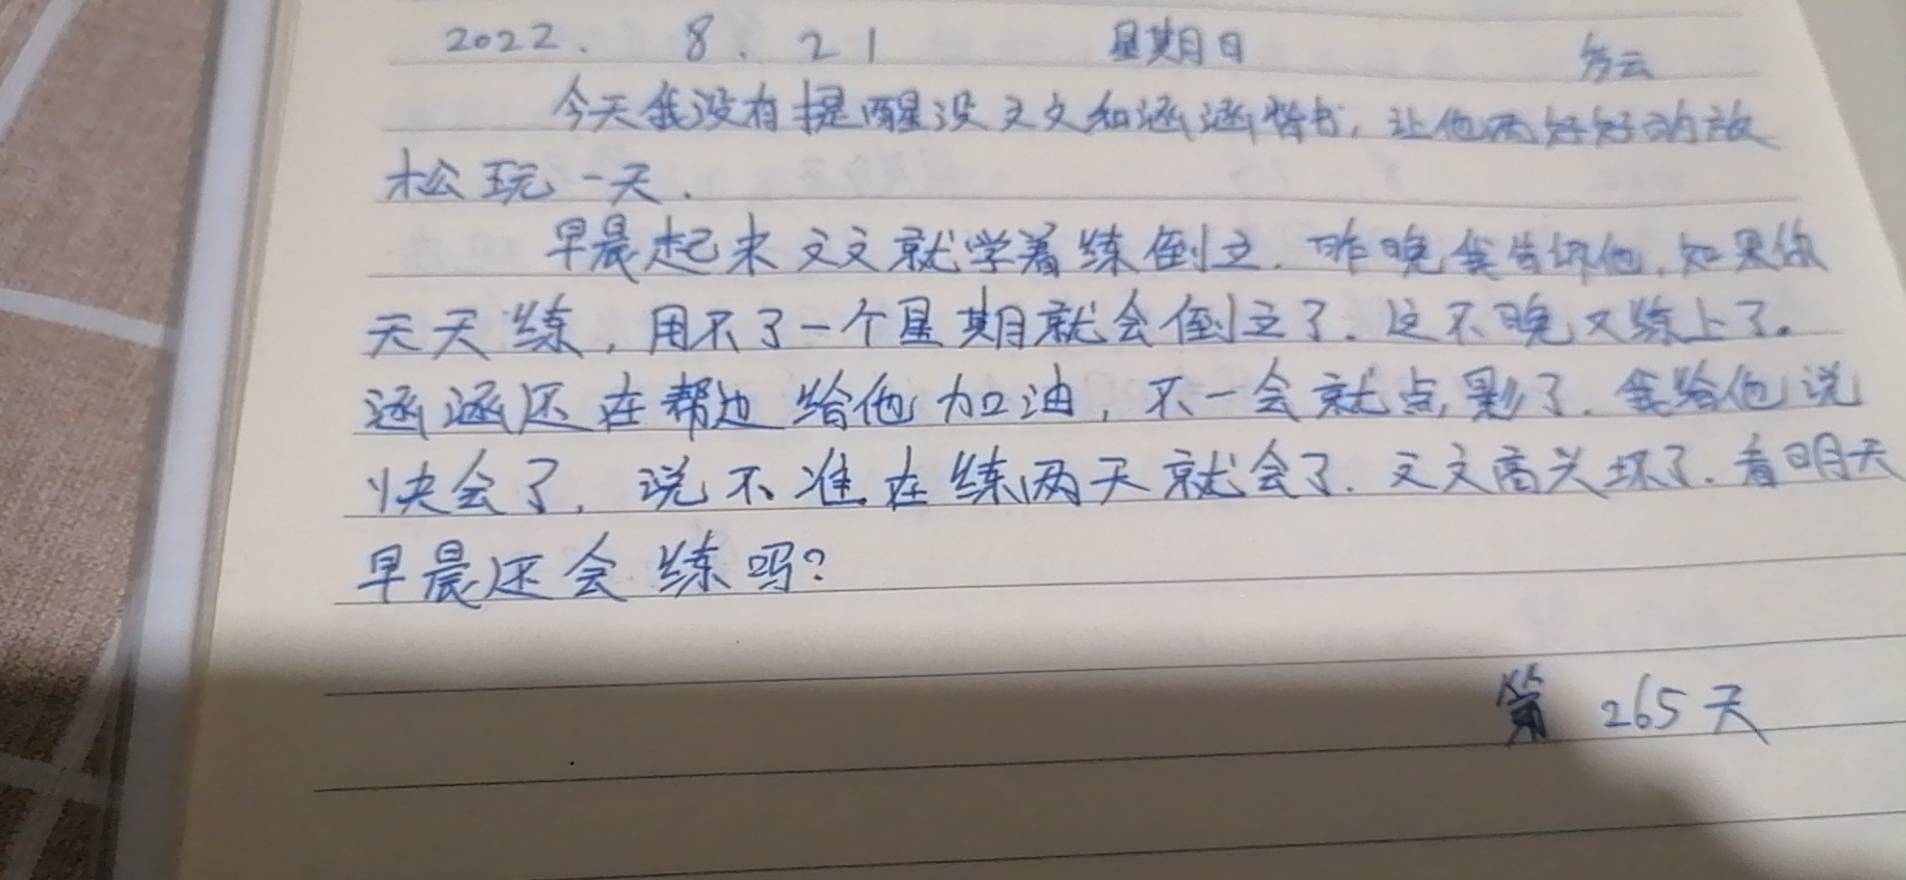 2022. 8. 21 星期日 多云
今天我没有提醒没文文和涵涵背书, 让他两好好的放
松玩一天.
早晨起来文文就学着练倒立. 昨晚我告诉他, 如果你
天天练, 用不了一个星期就会倒立了. 这不晚又练上了。
涵涵还在帮边给他加油, 不一会就点影了. 我给他说
快会了, 说不准在练两天就会了. 文文高兴坏了. 看明天
早晨还会练吗?
第 265天